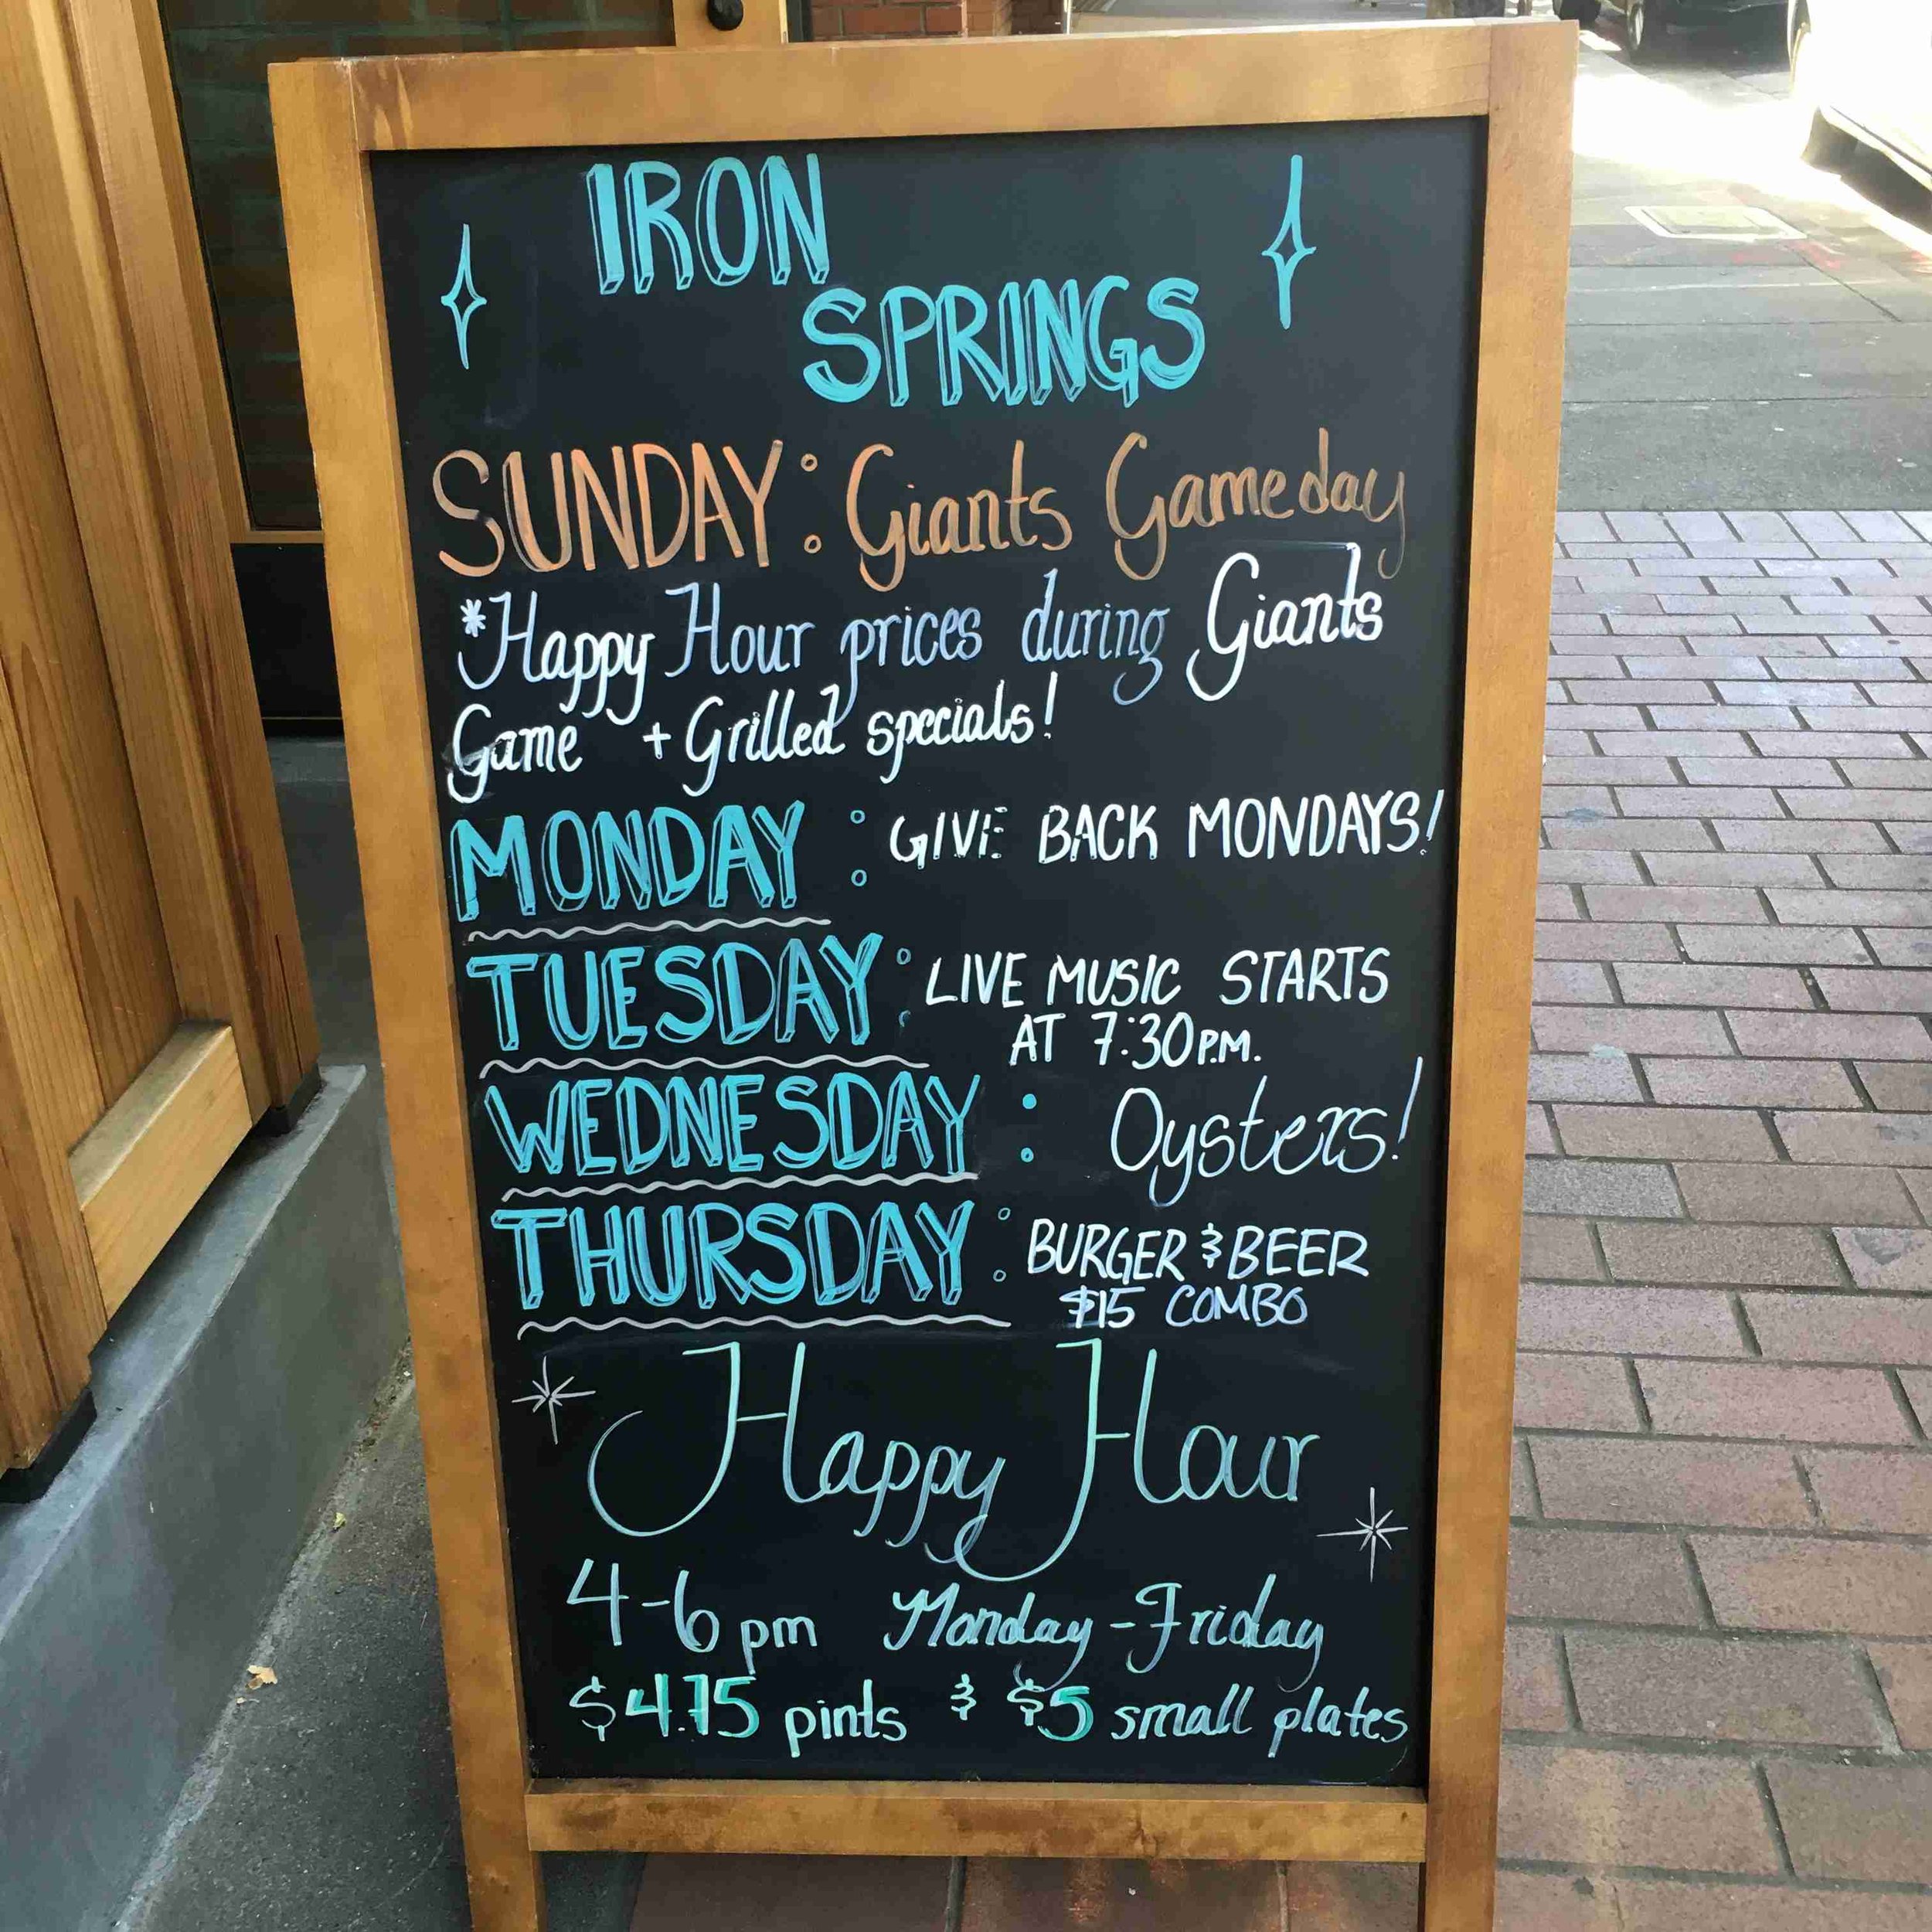 IRON
SPRINGS
SUNDAY: Giants Gameday
*Happy Hour prices during Giants
Game + Grilled specials!
MONDAY: GIVE BACK MONDAYS!
TUESDAY: LIVE MUSIC STARTS
AT 7:30 P.M.
WEDNESDAY: Oysters!
THURSDAY: BURGER & BEER
$15 COMBO
Happy Hour
4-6 pm Monday-Friday
$4.75 pints & $5 small plates